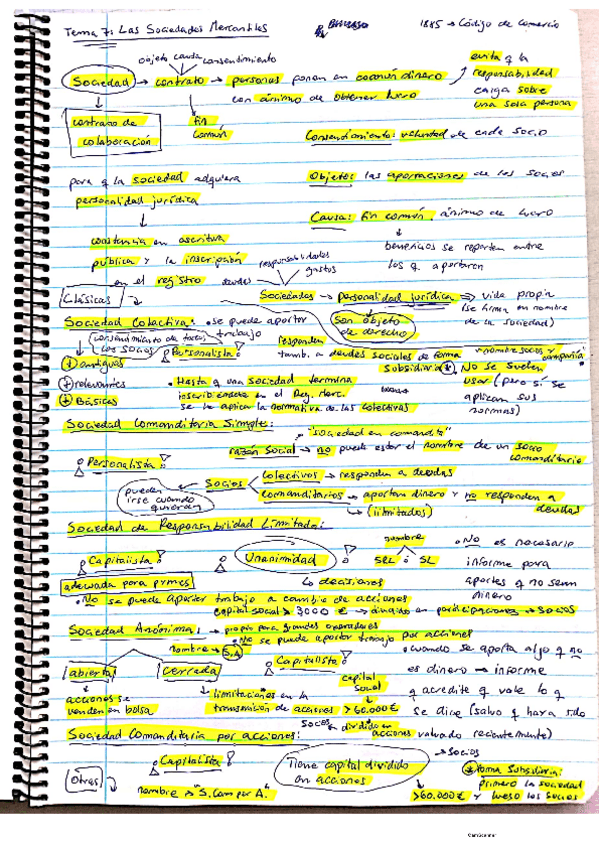 Tema 7: Las Sociedades Mercantiles
1885 → Código de Comercio
objeto causa consentimiento
Sociedad → contrato → personas ponen en común dinero
con ánimo de obtener lucro
evita q la
responsabilidad
caiga sobre
una sola persona
contrato de
colaboración
fin
común
Consentimiento: voluntad de cada socio
para q la sociedad adquiera
personalidad jurídica
Objeto: las aportaciones de los socios
Causa: fin común, ánimo de lucro
constancia en escritura
pública y la inscripción
en el registro
beneficios se reparten entre
los q aportaron
responsabilidades
deudas gastos
Clásicas
Sociedades → personalidad jurídica ⇒ vida propia
(se firma en nombre
de la sociedad)
Son objeto
de derecho
Sociedad Colectiva: • se puede aportar
trabajo
consentimiento de todos
los socios
Personalista
responden
tamb. a deudas sociales de forma
subsidiaria
• nombre socios y compañía
+ antiguas
+ relevantes
+ Básicas
• Hasta q una sociedad termina
inscribiéndose en el Reg. Merc.
se le aplica la normativa de las colectivas
• No se suelen
usar (pero si se
aplican sus
normas)
Sociedad Comanditaria Simple:
• "sociedad en comandita"
razón social → no puede estar el nombre de un socio
comanditario
Personalista
Socios
Colectivos → responden a deudas
Comanditarios → aportan dinero y no responden a
deudas
(limitados)
pueden
irse cuando
quieran
Sociedad de Responsabilidad Limitada:
Capitalista
Unanimidad
↳ decisiones
nombre
SRL SL
• No es necesario
informe para
aportes q no sean
dinero
adecuada para pymes
• No se puede aportar trabajo a cambio de acciones
capital social > 3000 € → dividido en participaciones → socios
Sociedad Anónima: → propia para grandes operadores
• No se puede aportar trabajo por acciones
nombre → S.A
Capitalista
• cuando se aporta algo q no
es dinero → informe
q acredite q vale lo q
se dice (salvo q haya sido
valorado recientemente)
abierta
cerrada
acciones se
venden en bolsa
limitaciones en la
transmisión de acciones
capital
social
> 60.000 €
dividido en
acciones
socios
Sociedad Comanditaria por acciones:
Capitalista
Tiene capital dividido
en acciones
→ socios
> 60.000 €
forma subsidiaria:
primero la sociedad
y luego los socios
Otras
nombre → "S. Com por A."
CamScanner